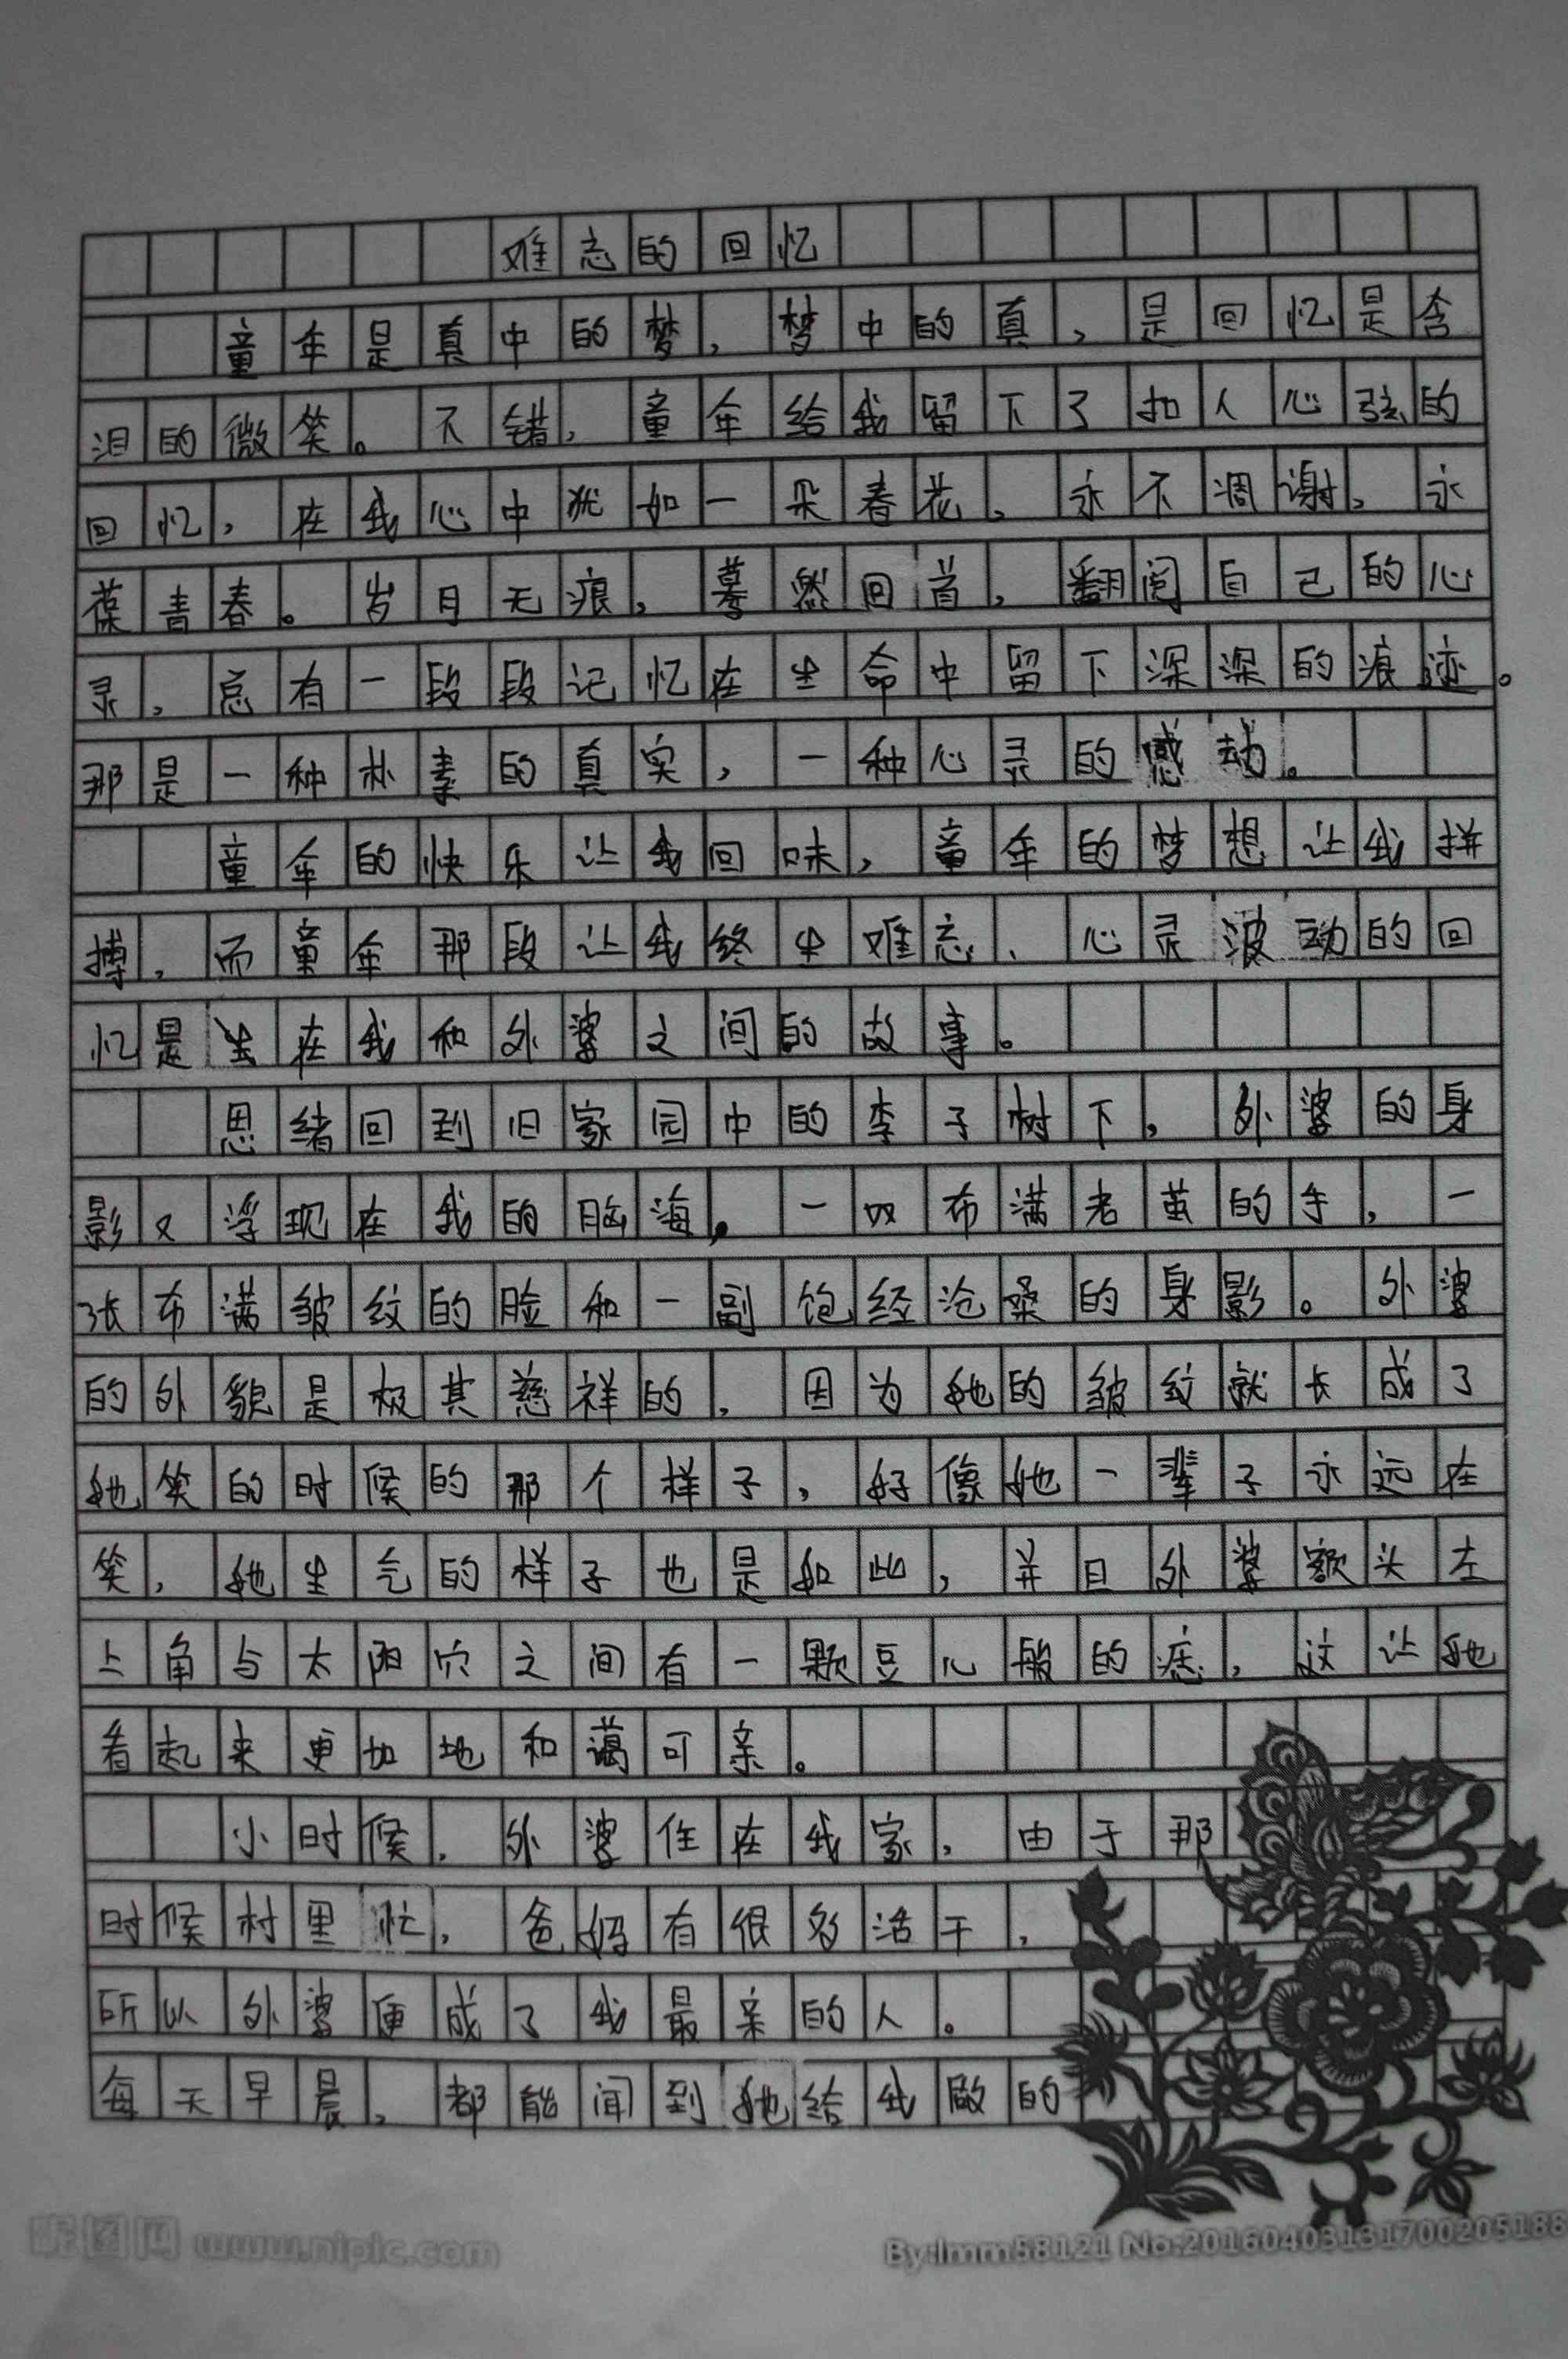 难忘的回忆
童年是真中的梦，梦中的真，是回忆是含
泪的微笑。不错，童年给我留下了扣人心弦的
回忆，在我心中犹如一朵春花，永不凋谢，永
葆青春。岁月无痕，蓦然回首，翻阅自己的心
灵，总有一段段记忆在生命中留下深深的痕迹。
那是一种朴素的真实，一种心灵的感动。
童年的快乐让我回味，童年的梦想让我拼
搏，而童年那段让我终生难忘、心灵波动的回
忆是生在我和外婆之间的故事。
思绪回到旧家园中的李子树下，外婆的身
影又浮现在我的脑海，一双布满老茧的手，一
张布满皱纹的脸和一副饱经沧桑的身影。外婆
的外貌是极其慈祥的，因为她的皱纹就长成了
她笑的时候的那个样子，好像她一辈子永远在
笑，她生气的样子也是如此，并且外婆额头左
上角与太阳穴之间有一颗豆心般的痣，这让她
看起来更加地和蔼可亲。
小时候，外婆住在我家，由于那
时候村里忙，爸妈有很多活干，
所以外婆便成了我最亲的人。
每天早晨，都能闻到她给我做的
昵图网 www.nipic.com
By:lmm88121 No:20160403131700205188